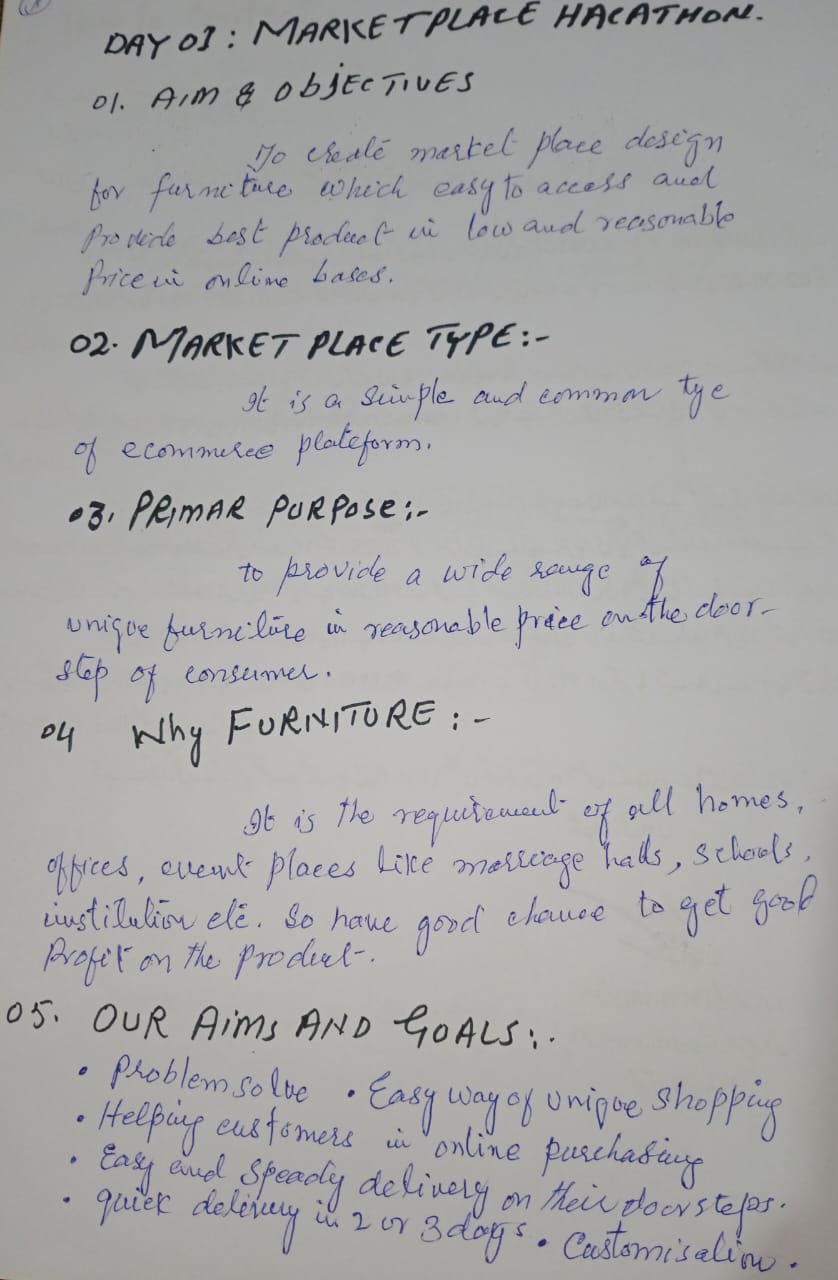 DAY 01: MARKETPLACE HACATHON.
01. AIM & ObjECTIVES
To create market place design
for furniture which easy to access and
Provide best product in low and reasonable
Price in online bases.
02. MARKET PLACE TYPE:-
It is a simple and common tye
of ecommerce plateform.
03. PRIMAR PURPOSE:-
to provide a wide range of
unique furniture in reasonable price on the door-
step of consumer.
04 Why FURNITURE :-
It is the requirement of all homes,
offices, event places like marriage halls, schools,
institution etc. So have good chance to get good
Profit on the product.
05. OUR AIMS AND GOALS:.
• Problem solve • Easy way of unique shopping
• Helping customers in online purchasing
• Easy and Speady delivery on their doorsteps.
• quick delivery in 2 or 3 days • Customisation.